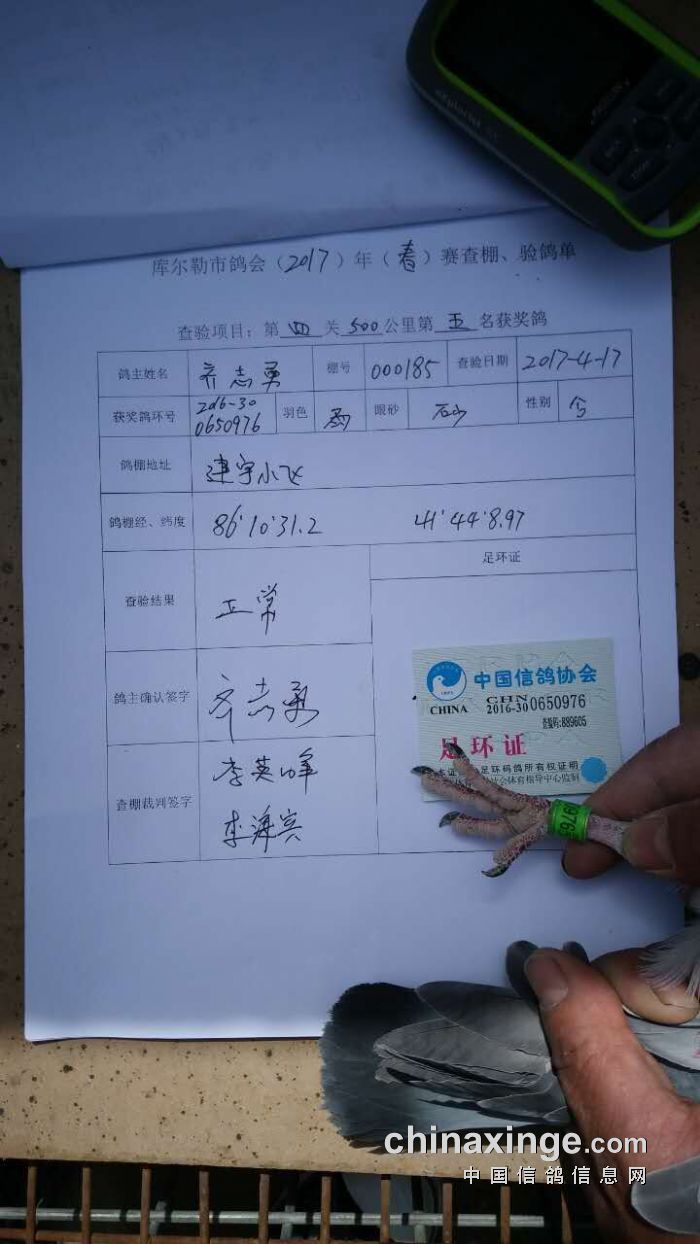 库尔勒市鸽会（2017）年（春）赛查棚、验鸽单
查验项目：第 四 关 500 公里第 五 名获奖鸽
鸽主姓名 齐志勇 棚号 000185 查验日期 2017-4-17
获奖鸽环号 2016-30 0650976 羽色 雨 眼砂 石山 性别
鸽棚地址 建宇小飞
鸽棚经、纬度 86°10'31.2 41°44'8.97
足环证
查验结果 正常
鸽主确认签字 齐志勇
查棚裁判签字 李英峰
李海宾
中国信鸽协会
CHINA CHN
2016-30 0650976
889605
足环证
本证 足环码鸽所有权证明
体育指导中心监制
0976
chinaxinge.com
中国信鸽信息网